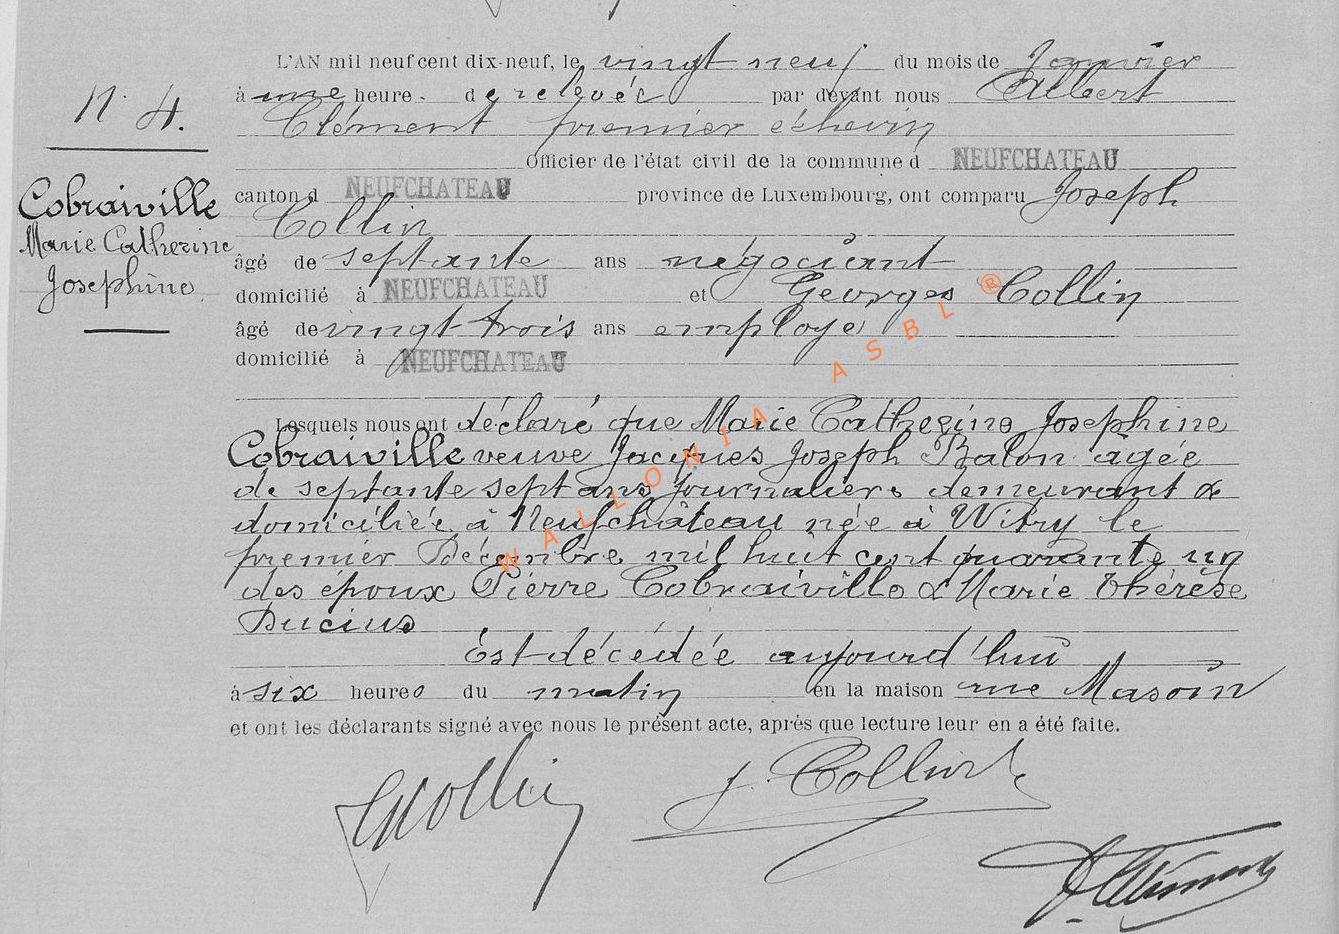 N° 4.
Cobraiville
Marie Catherine
Josephine
L'AN mil neuf cent dix-neuf, le vingt neuf du mois de Janvier
à une heure de relevée par devant nous Albert
Clément premier échevin
Officier de l'état civil de la commune d NEUFCHATEAU
canton d NEUFCHATEAU province de Luxembourg, ont comparu Joseph
Collin
âgé de septante ans négociant
domicilié à NEUFCHATEAU et Georges Collin
âgé de vingt trois ans employé
domicilié à NEUFCHATEAU
Lesquels nous ont déclaré que Marie Catherine Josephine
Cobraiville veuve Jacques Joseph Balon agée
de septante sept ans journalière demeurant &
domiciliée à Neufchâteau née à Witry le
premier Décembre mil huit cent quarante un
des époux Pierre Cobraiville & Marie Thérèse
Ducius
Est décédée aujourd'hui
à six heures du matin en la maison rue Masoin
et ont les déclarants signé avec nous le présent acte, après que lecture leur en a été faite.
GCollin
J. Collin
AClément
WALLONIA ASBL ®